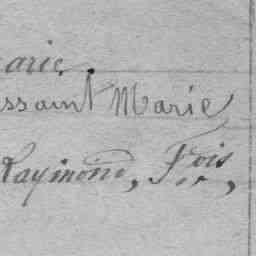 arie.
ssaint Marie
Raymond, Fois,